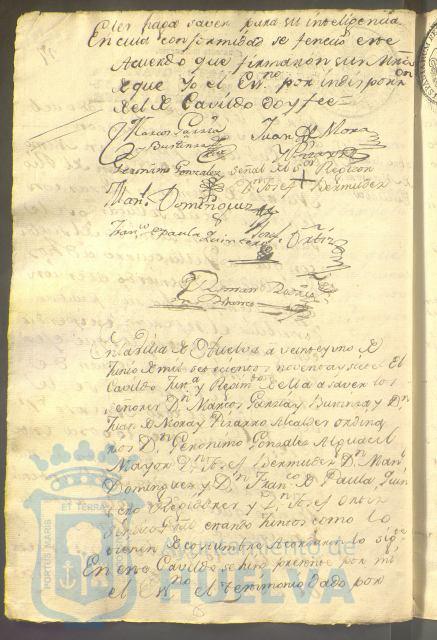 Cter haga saver para su inteligencia
En cuia conformidad se fenecio este
Acuerdo que firmaron sus Mrds
de que Yo el Essno por indisposn
del de Cavildo doy fee=
Marcos Garzia
y Bustanza
Juan de Mora
Pizarro
Geronimo Gonzalez
señal del Sor Regidor
Dn Josef Bermudez
Manl Dominguez
Franco de Paula
Quintero
Josef Ortiz
Roman
En la Villa de Huelva a veinte y uno de
Junio de mil setecientos noventa y siete El
Cavildo Justa y Regimto de ella a saver los
señores Dn Marcos Garzia y Bustanza y Dn
Juan de Mora y Pizarro Alcaldes ordina
rios Dn Geronimo Gonzalez Alguacil
Mayor Dn Josef Bermudez Dn Manl
Dominguez y Dn Franco de Paula Quin
tero Regidores y Dn Josef Ortiz
Sindico Gral estando juntos como lo
tienen de costumbre acordaron lo sigte
En este Cavildo se hizo presente por mi
el Essno el testimonio dado por
PORTUS MARIS
ET TERRAE
Ayuntamiento de
HUELVA